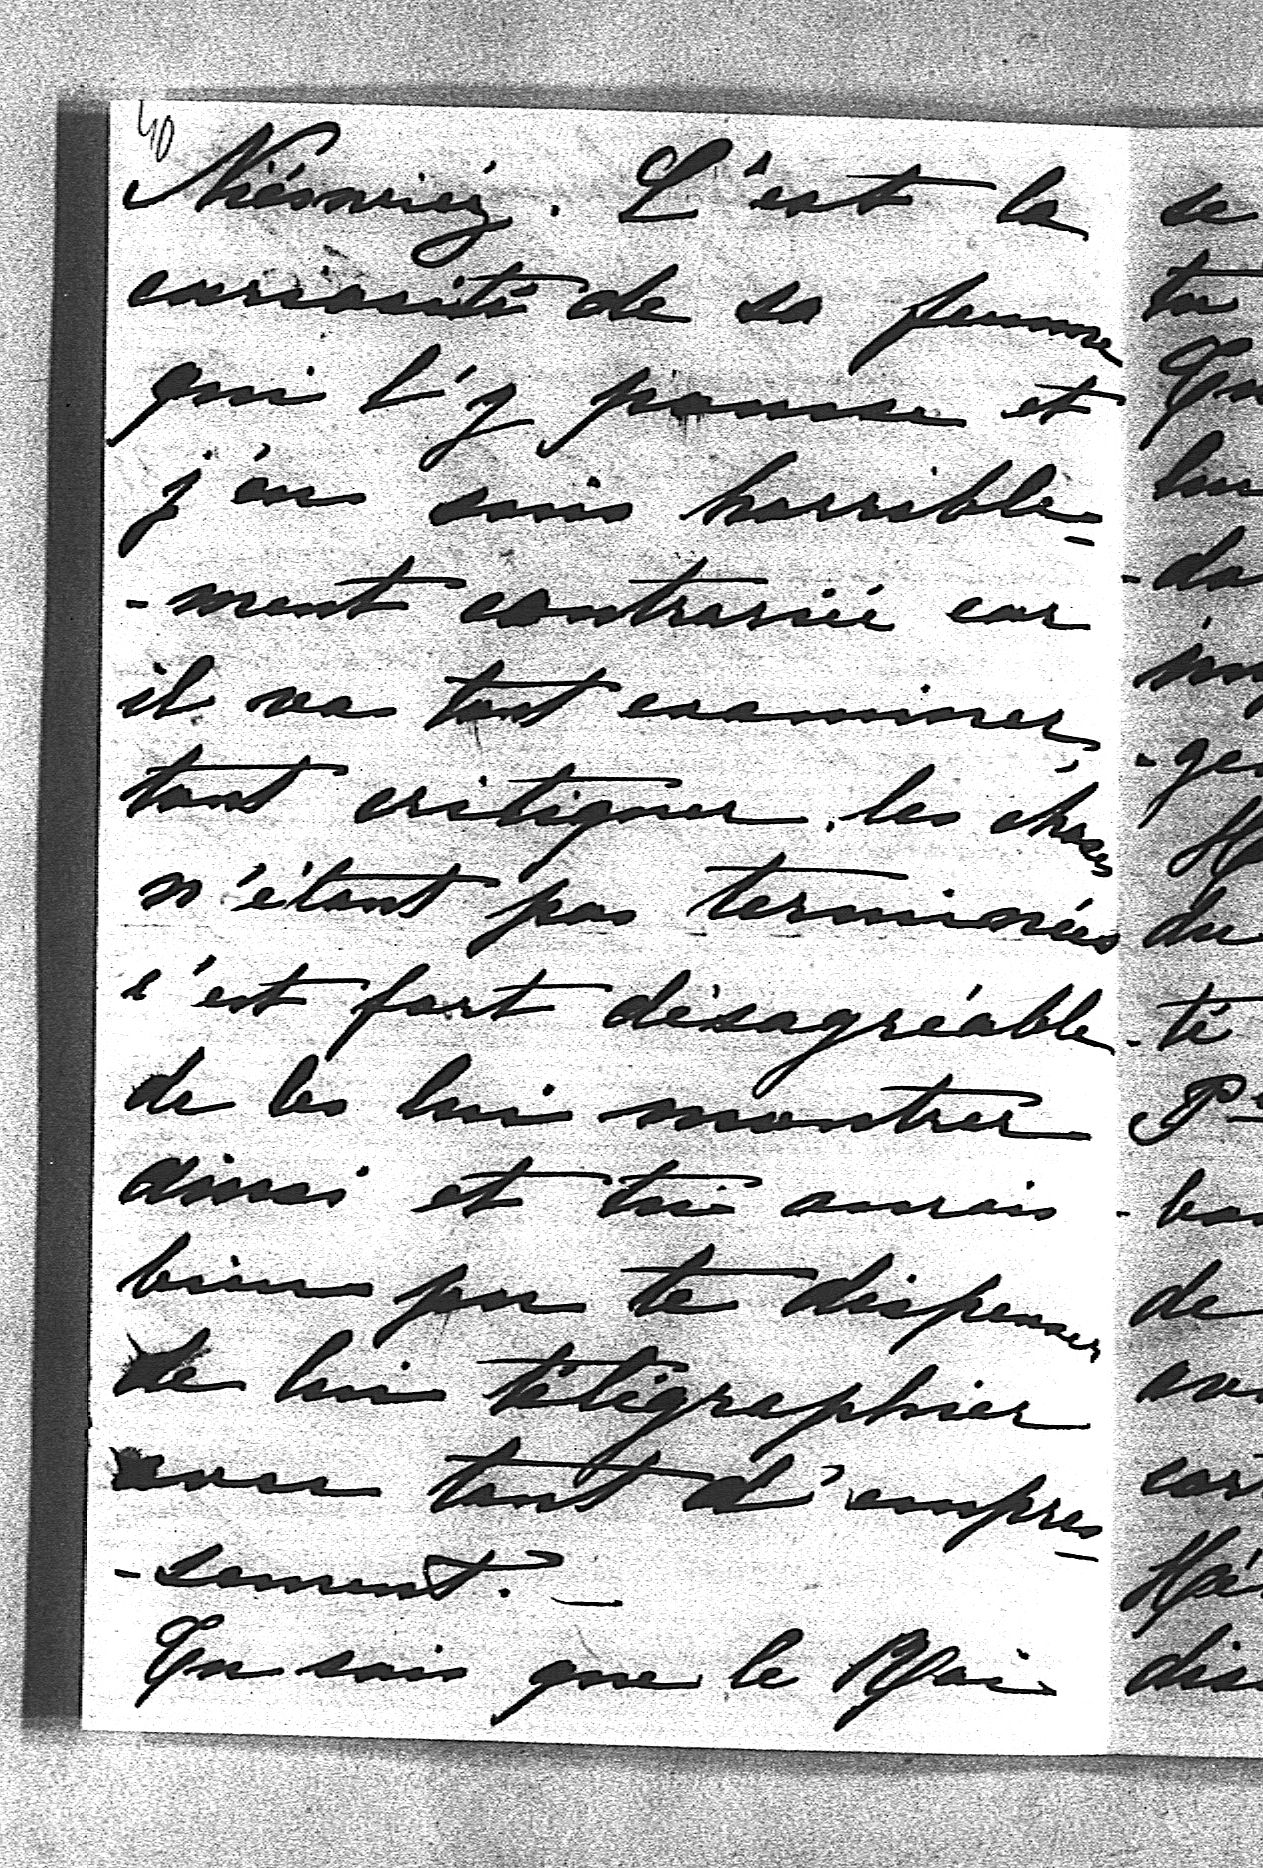 40
Niéswiéz. C'est la
curiosité de sa femme
qui l'y pousse et
j'en suis horrible-
-ment contrariée car
il va tout examiner
tout critiquer, les choses
n'étant pas terminées
c'est fort désagréable
de les lui montrer
ainsi et tu aurais
bien pu te dispenser
de lui télégraphier
avec tant d'empres-
-sement. —
Tu sais que le
se
tu
-té
de